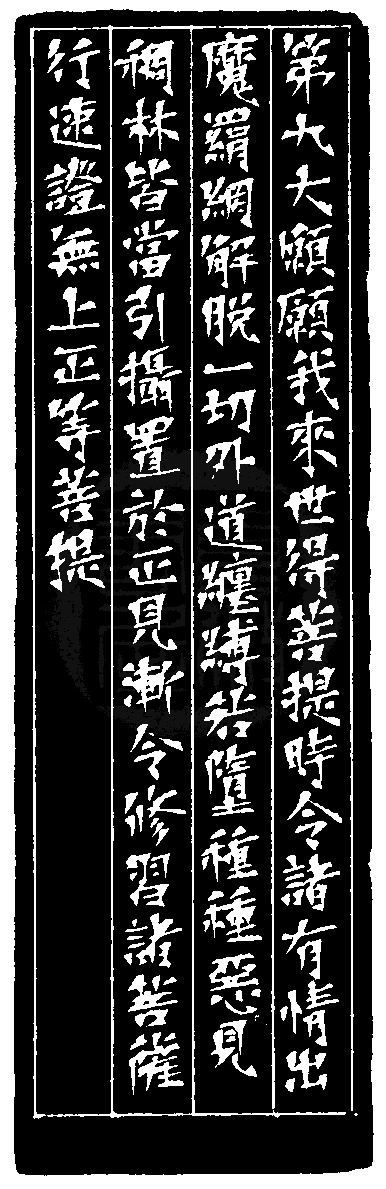 第九大願願我來世得菩提時令諸有情出
魔羂網解脫一切外道纏縛若墮種種惡見
稠林皆當引攝置於正見漸令修習諸菩薩
行速證無上正等菩提